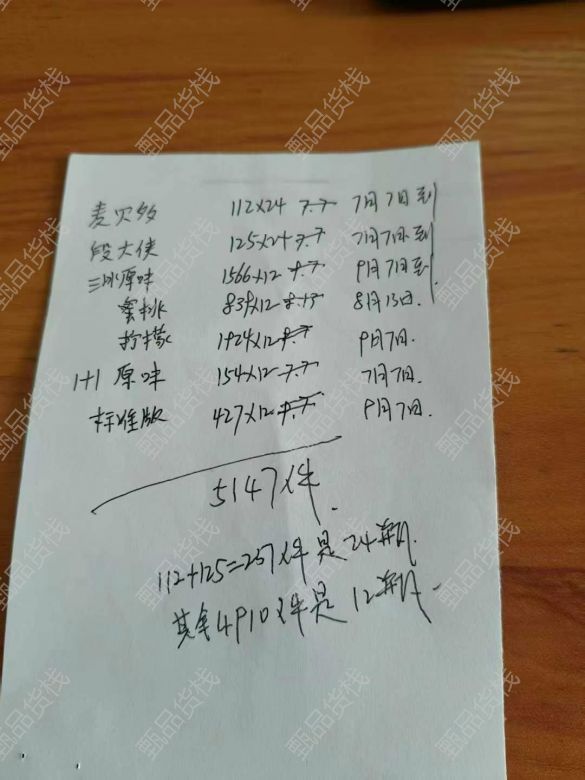 麦贝多 112×24 7.7 7月7日到
段大侠 125×24 7.7 7月7日到
三州原味 1566×12 9.7 9月7日到
蜜桃 839×12 8.13 8月13日.
柠檬 1924×12 9.7 9月7日.
1+1原味 154×12 7.7 7月7日.
标准版 427×12 9.7 9月7日.
5147件.
112+125=237件是24瓶.
其余4910件是12瓶.
甄品货栈